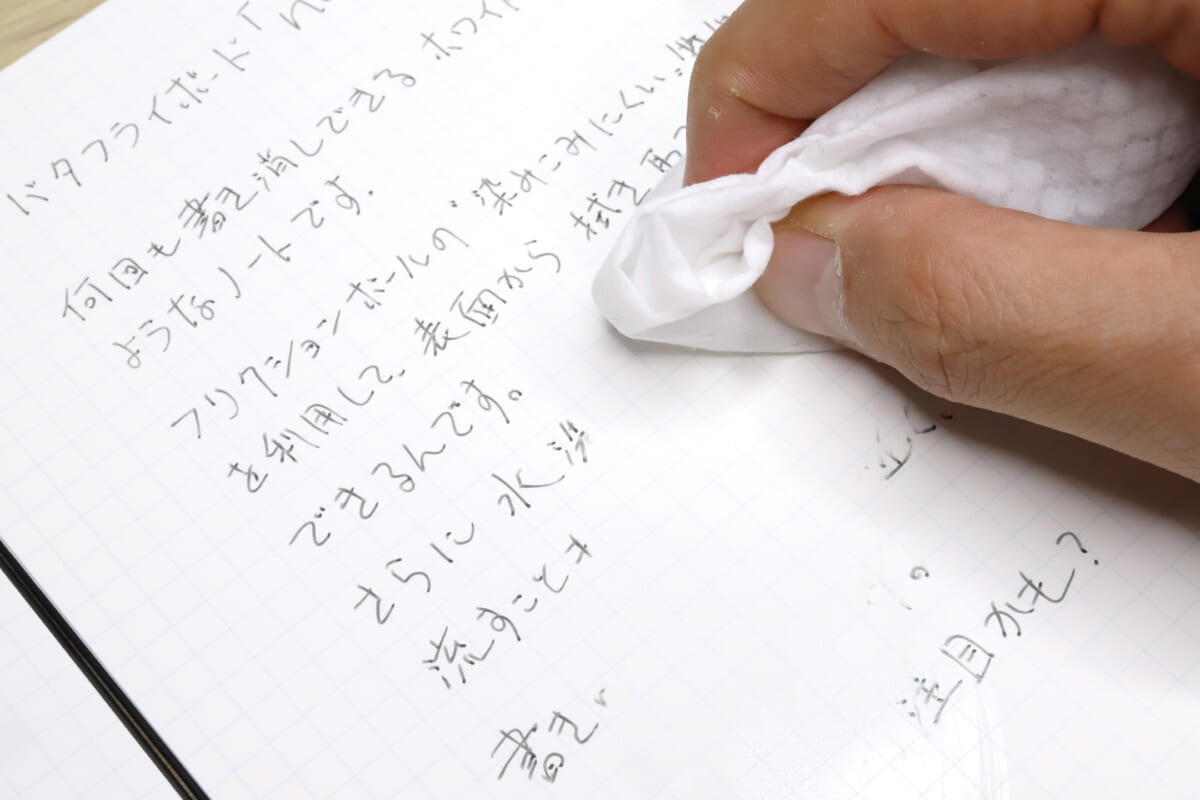 バタフライボード「
何回も書き消しできるホワイト
ようなノートです.
フリクションボールの"染みこみにくい"
を利用して、表面から拭き取
できるんです。
さらに水洗
流すこと
書き
。
注目かも?